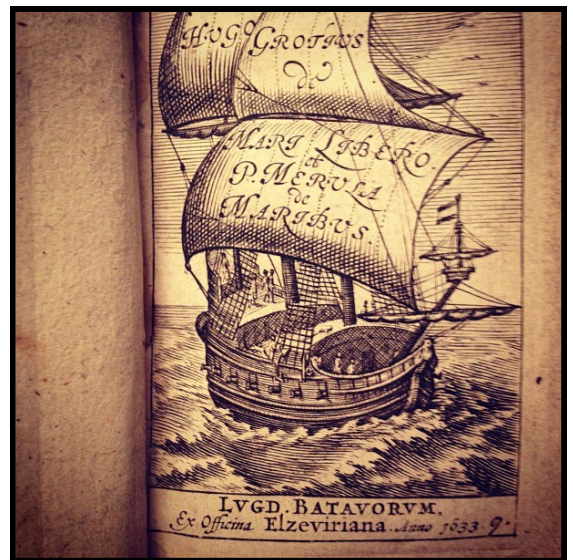 HUGO GROTIUS
de
MARI LIBERO.
et
P. MERVLA
de
MARIBVS.
LVGD. BATAVORVM,
Ex Officina Elzeviriana. Anno 1633. 9.